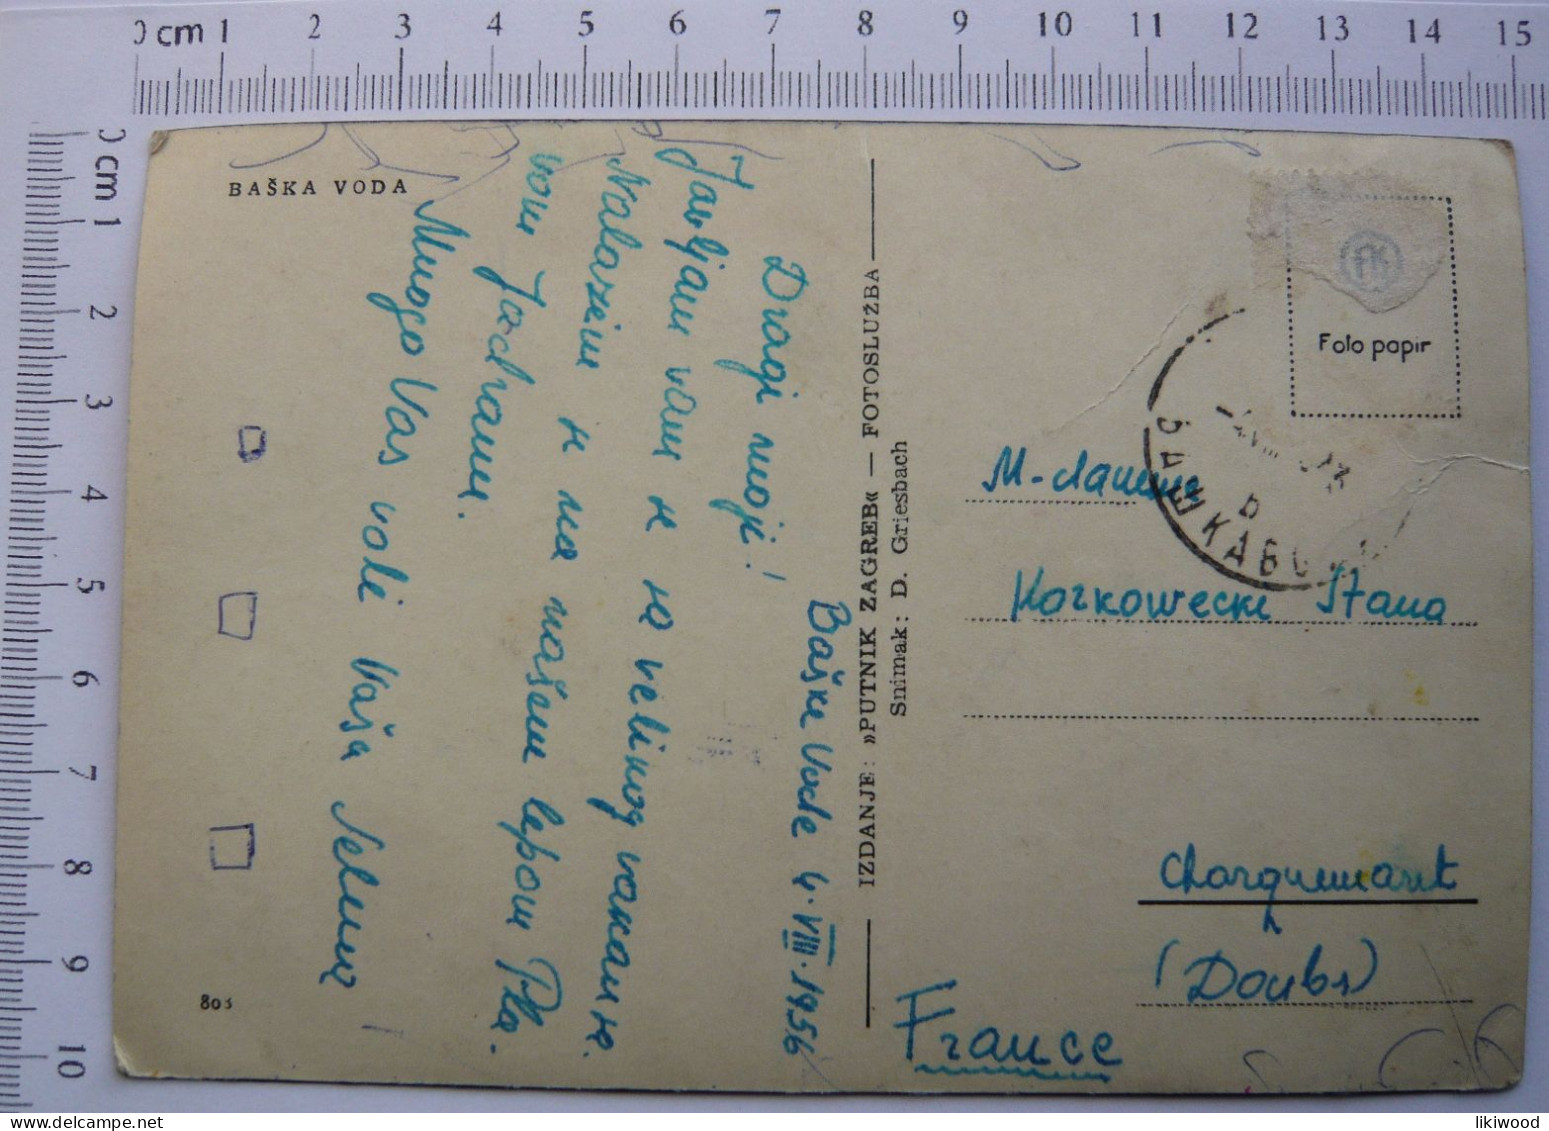 0 cm 1 2 3 4 5 6 7 8 9 10 11 12 13 14 15
0 cm 1 2 3 4 5 6 7 8 9 10
BAŠKA VODA
803
Baška Voda 4.VIII.1956
Dragi moji!
Javljam vam se sa velikog
Nalazim se na našem lepom Pla-
vom Jadranu.
Mnogo Vas voli Vaša
IZDANJE: »PUTNIK ZAGREB« — FOTOSLUŽBA
Snimak: D. Griesbach
Foto papir
БАШКА ВО
M-damme
Korkowecki Stana
Charquemont
(Doubs)
France
likiwood